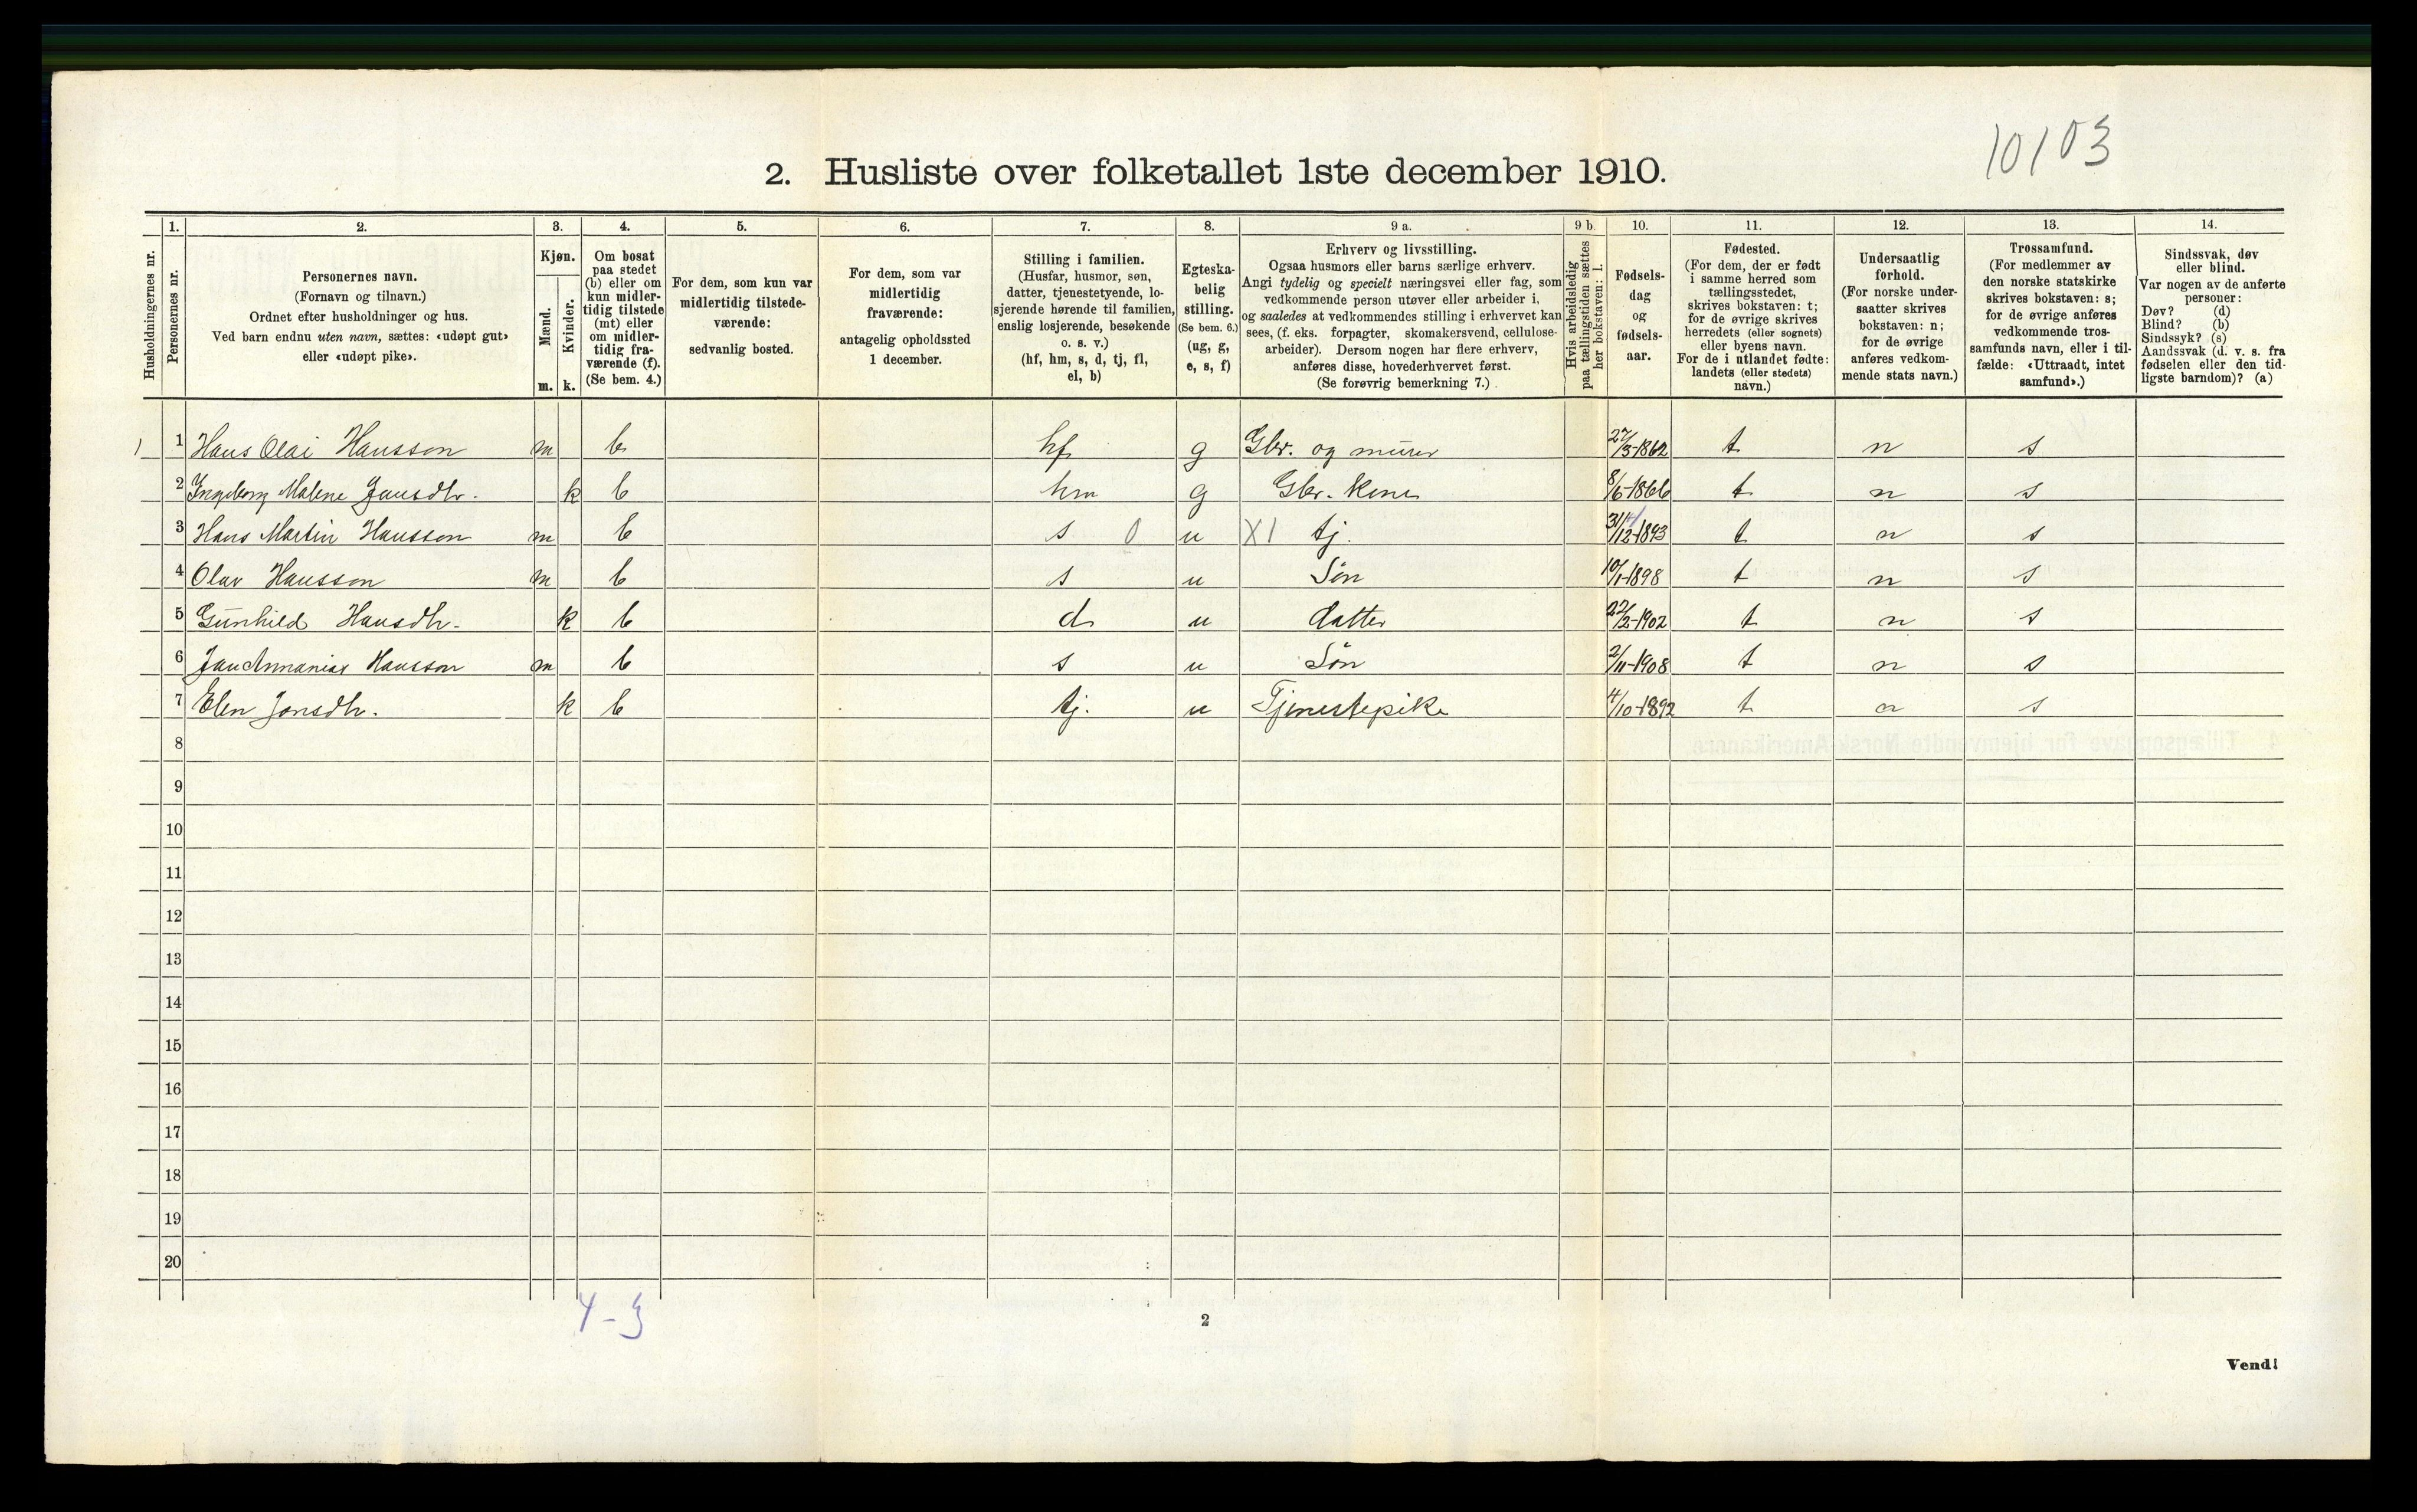 10103
2. Husliste over folketallet 1ste december 1910.
Husholdningernes nr.
1.
Personernes nr.
2.
Personernes navn.
(Fornavn og tilnavn.)
Ordnet efter husholdninger og hus.
Ved barn endnu uten navn, sættes: «udøpt gut»
eller «udøpt pike».
3.
Kjøn.
Mænd.
m.
Kvinder.
k.
4.
Om bosat
paa stedet
(b) eller om
kun midler-
tidig tilstede
(mt) eller
om midler-
tidig fra-
værende (f).
(Se bem. 4.)
5.
For dem, som kun var
midlertidig tilstede-
værende:
sedvanlig bosted.
6.
For dem, som var
midlertidig
fraværende:
antagelig opholdssted
1 december.
7.
Stilling i familien.
(Husfar, husmor, søn,
datter, tjenestetyende, lo-
sjerende hørende til familien,
enslig losjerende, besøkende
o. s. v.)
(hf, hm, s, d, tj, fl,
el, b)
8.
Egteska-
belig
stilling.
(Se bem. 6.)
(ug, g,
e, s, f)
9 a.
Erhverv og livsstilling.
Ogsaa husmors eller barns særlige erhverv.
Angi tydelig og specielt næringsvei eller fag, som
vedkommende person utøver eller arbeider i,
og saaledes at vedkommendes stilling i erhvervet kan
sees, (f. eks. forpagter, skomakersvend, cellulose-
arbeider). Dersom nogen har flere erhverv,
anføres disse, hovederhvervet først.
(Se forøvrig bemerkning 7.)
9 b.
Hvis arbeidsledig
paa tællingstiden sættes
her bokstaven: l.
10.
Fødsels-
dag
og
fødsels-
aar.
11.
Fødested.
(For dem, der er født
i samme herred som
tællingsstedet,
skrives bokstaven: t;
for de øvrige skrives
herredets (eller sognets)
eller byens navn.
For de i utlandet fødte:
landets (eller stedets)
navn.)
12.
Undersaatlig
forhold.
(For norske under-
saatter skrives
bokstaven: n;
for de øvrige
anføres vedkom-
mende stats navn.)
13.
Trossamfund.
(For medlemmer av
den norske statskirke
skrives bokstaven: s;
for de øvrige anføres
vedkommende tros-
samfunds navn, eller i til-
fælde: «Uttraadt, intet
samfund».)
14.
Sindssvak, døv
eller blind.
Var nogen av de anførte
personer:
Døv? (d)
Blind? (b)
Sindssyk? (s)
Aandssvak (d. v. s. fra
fødselen eller den tid-
ligste barndom)? (a)
1 1 Hans Olai Hansson m b hf g Gbr. og murer 27/3-1862 t n s
2 Ingeborg Malene Jansdtr. k b hm g Gbr. kone 8/6-1866 t n s
3 Hans Martin Hansson m b s 0 u X1 tj. 31/12-1893 t n s
4 Olav Hansson m b s u Søn 10/1-1898 t n s
5 Gunhild Hansdtr. k b d u datter 22/2-1902 t n s
6 Jan Annanias Hansson m b s u Søn 2/11-1908 t n s
7 Elen Jonsdtr. k b tj. u Tjenestepike 4/10-1892 t n s
8
9
10
11
12
13
14
15
16
17
18
19
20
4-3
2
Vend!